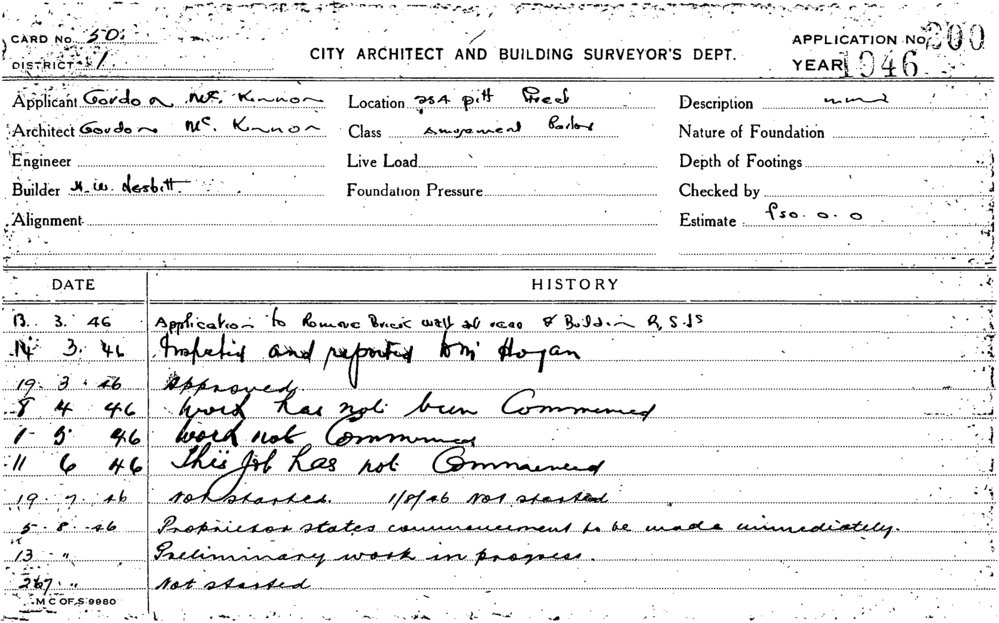 CARD No 50.
DISTRICT 1
CITY ARCHITECT AND BUILDING SURVEYOR'S DEPT.
APPLICATION No 200
YEAR 1946
Applicant Gordon Mc. Kinnon Location 254 Pitt Street Description
Architect Gordon Mc. Kinnon Class Amusement Parlor Nature of Foundation
Engineer Live Load Depth of Footings
Builder H. W. Nesbitt Foundation Pressure Checked by
Alignment Estimate £50. 0. 0
DATE HISTORY
13. 3. 46 Application to Remove Brick wall at rear of Building R.S.J's
14 3. 46 Inspected and reported to Mr Hogan
19. 3. 46 Approved
8 4 46 Work has not been Commenced
1 5 46 Work not Commenced
11 6 46 This Job has not Commenced
19. 7. 46 Not started. 1/8/46 Not started
5. 8. 46 Proprietor states commencement to be made immediately.
13 " Preliminary work in progress.
" Not started
M C OF.S 9980